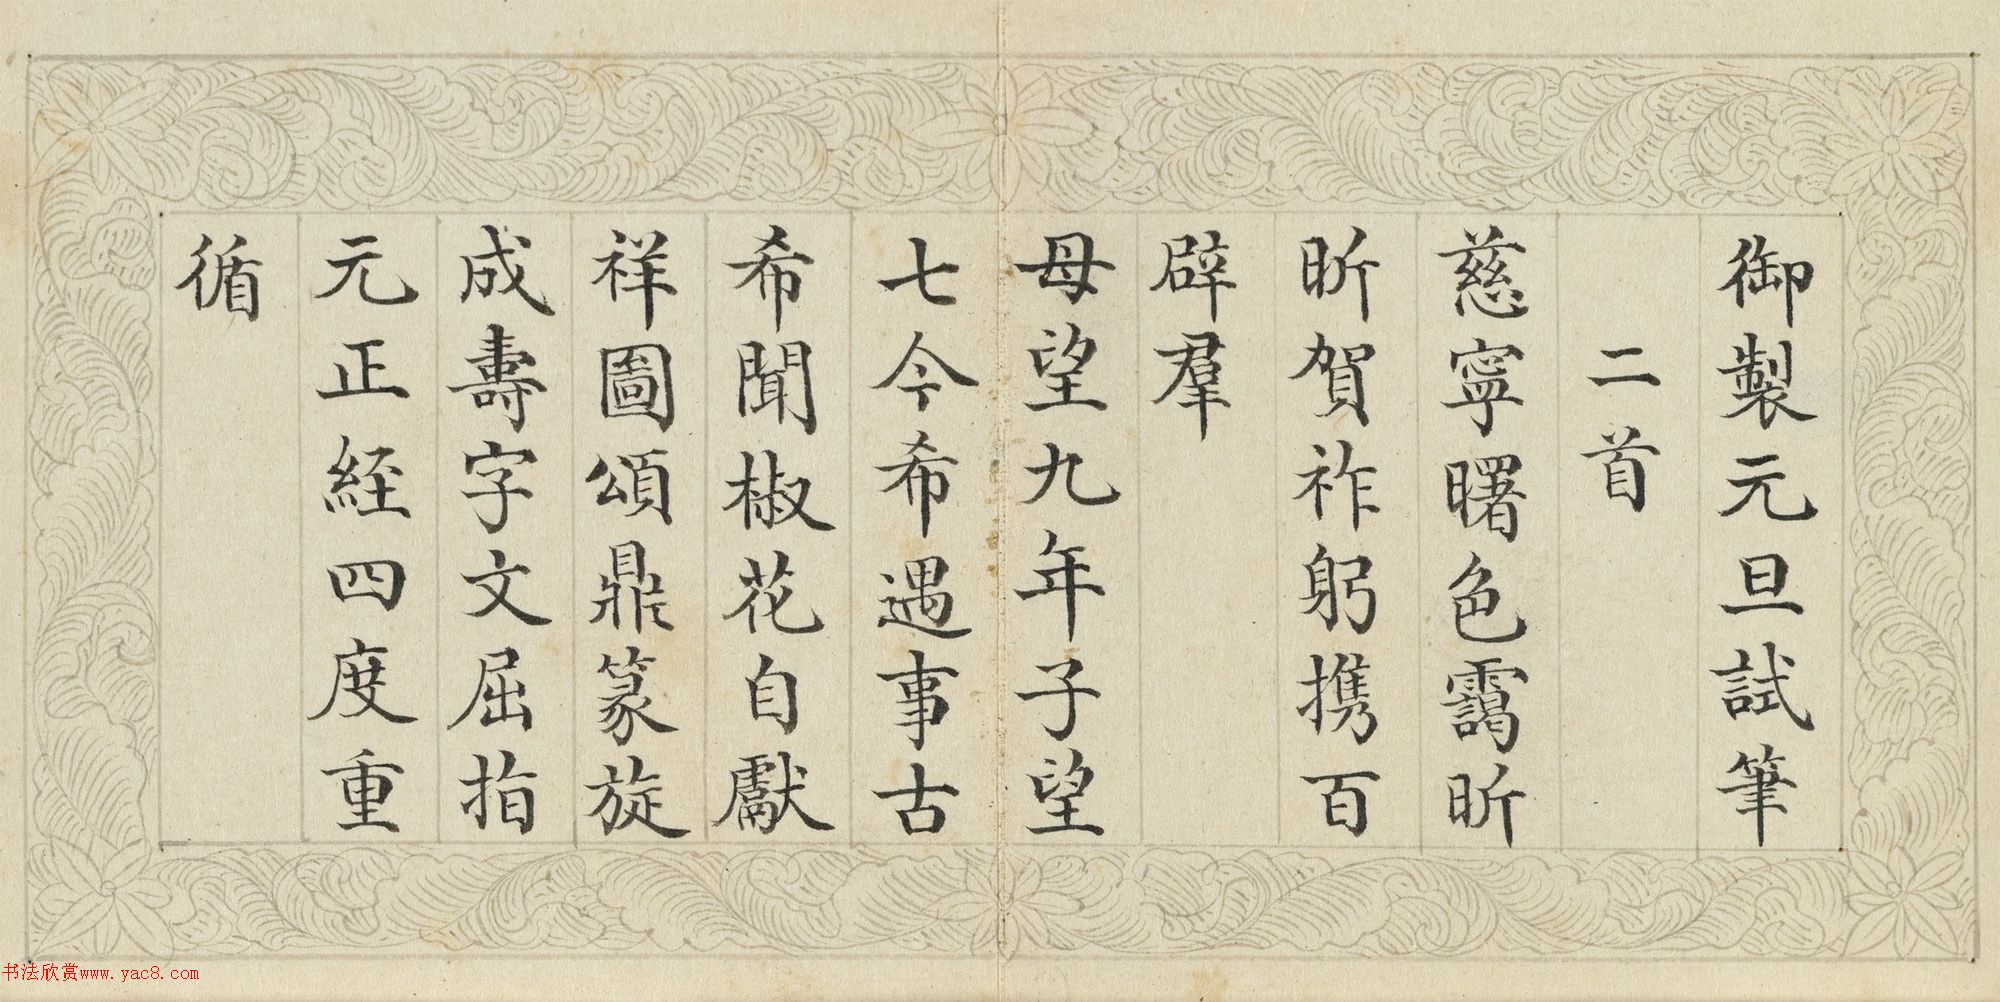 御製元旦試筆
二首
慈寧曙色靄昕
昕賀祚躬携百
辟羣
母望九年子望
七今希遇事古
希聞椒花自獻
祥圖頌鼎篆旋
成壽字文屈指
元正経四度重
循
书法欣赏www.yac8.com